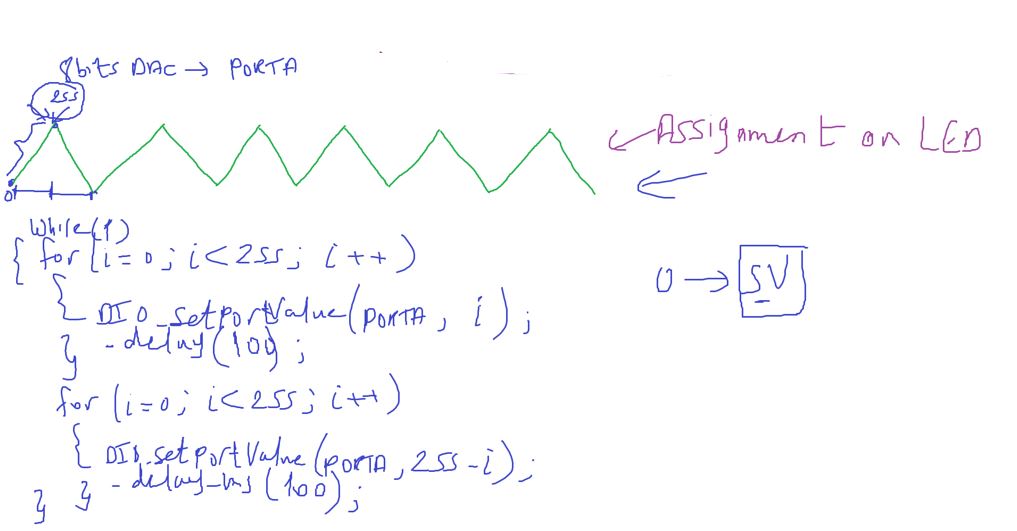 8bits DAC → PORTA
255
Assignment on LED
0
while(1)
{ for (i=0; i<255; i++)
{ DIO_setportValue(PORTA, i);
} _delay(100);
0 → 5V
for (i=0; i<255; i++)
{ DIO_setportValue(PORTA, 255-i);
} } _delay_ms(100);